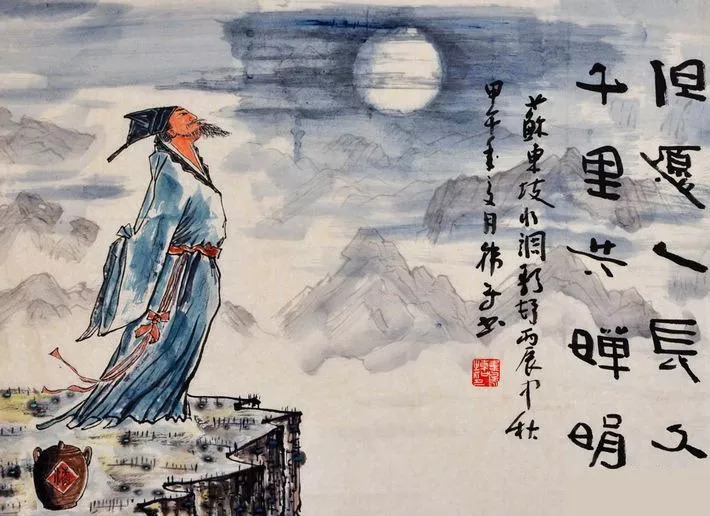 但愿人長久
千里共嬋娟
蘇東坡水調歌頭丙辰中秋
甲午月书